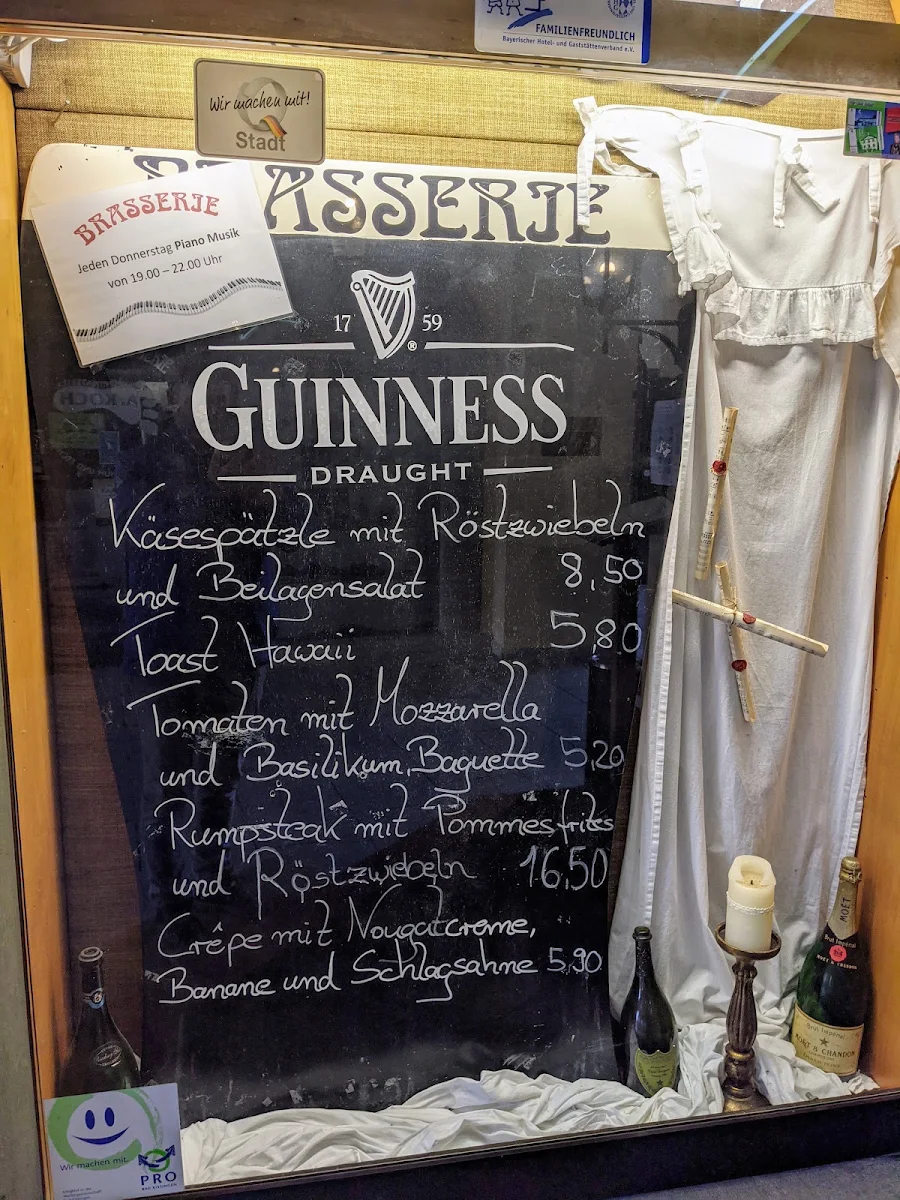 FAMILIENFREUNDLICH
Bayerischer Hotel- und Gaststättenverband e.V.
Wir machen mit!
Stadt
BRASSERIE
BRASSERIE
Jeden Donnerstag Piano Musik
von 19.00 – 22.00 Uhr
17 59
GUINNESS
DRAUGHT
Käsespätzle mit Röstzwiebeln
und Beilagensalat 8,50
Toast Hawaii 5,80
Tomaten mit Mozzarella
und Basilikum, Baguette 5,20
Rumpsteak mit Pommes frites
und Röstzwiebeln 16,50
Crêpe mit Nougatcreme,
Banane und Schlagsahne 5,90
MOËT
Brut Impérial
MOËT & CHANDON
Brut Impérial
MOËT & CHANDON
Wir machen mit.
PRO